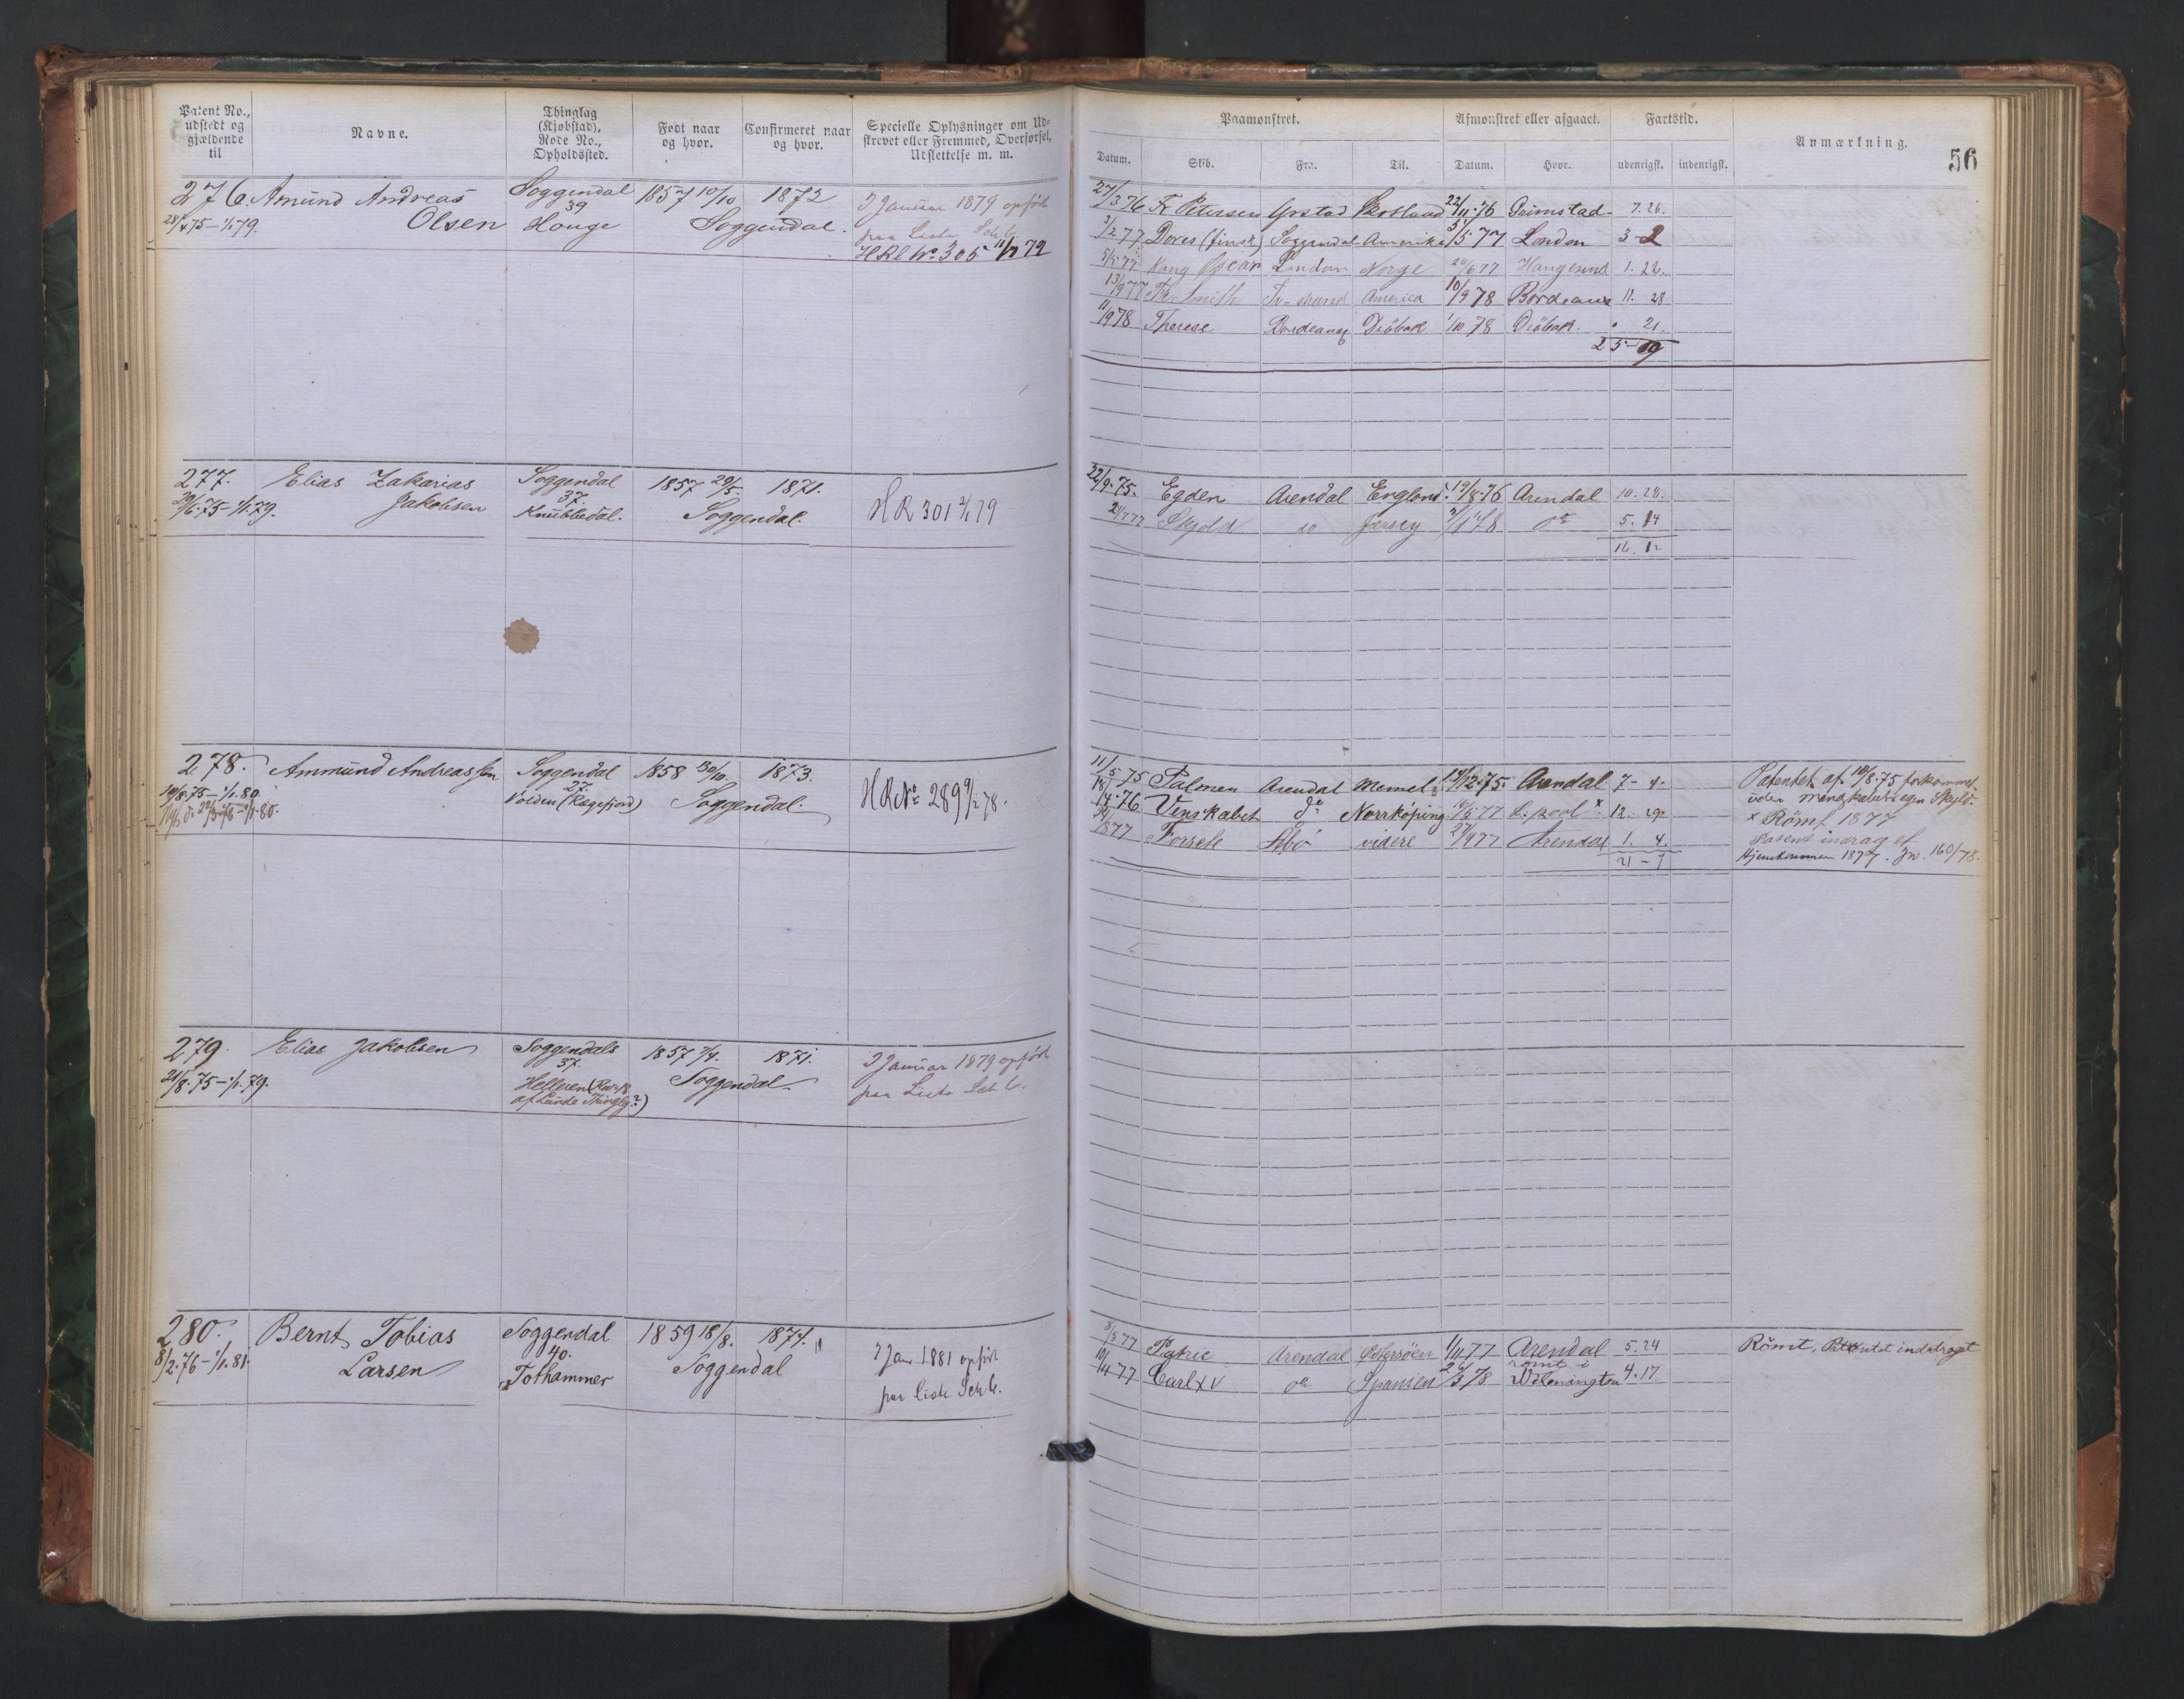 Patent No., udstedt og gjældende til
Navne.
Thinglag (Kjøbstad), Rode No., Opholdssted.
Født naar og hvor.
Confirmeret naar og hvor.
Specielle Oplysninger om Udskrevet eller Fremmed, Overførsel, Udslettelse m. m.
Paamønstret.
Afmønstret eller afgaaet.
Fartstid.
Anmærkning.
56
Datum.
Skib.
Fra.
Til.
Datum.
Hvor.
udenrigsk.
indenrigsk.
276. Amund Andreas Soggendal 1857 10/10 1872 I Januar 1879 opført
28/4 75 – 1/1 79. Olsen 39 Hauge Soggendal. paa Liste
HRl No 305 79
27/3 76 Fr Petersen Skotland 22/11 76 Grimstad 7. 26.
2/2 77 Dores (finsk) Soggendal Amerika 3/5 77 London 3 - 2
5/5 77 Kong Oscar London Norge 20/6 77 Haugesund 1. 22.
13/9 77 Smith America 10/9 78 Bordeaux 11. 28
11/9 78 Therese Bordeaux Drøbak 1/10 78 Drøbak. " 21.
25 - 19
277. Elias Zakarias Soggendal 1857 29/5. 1871.
29/6. 75 – 1/1. 79. Jakobsen 37. Knubbedal. Soggendal. HR 301 2/1 79
22/9. 75. Egden Arendal England 19/8. 76 Arendal 10. 28.
21/7 77 Skjold do Jersey 2/1 78 do 5. 14
16. 12
278. Ammund Andreassen Soggendal 1858 30/10. 1873.
10/8. 75 – 1/1. 80. 27. Volden (Rægefjord) Soggendal. HR No 289 9/2 78.
11/5 75 Palmen Arendal Memel 14/12. 75. Arendal 7 - 4.
18/4. 76 Venskabet do Norrköping 16/5 77 L.pool x 12. 29.
24/8 77 Forsete Åbo videre 27/9 77 Arendal 1. 4.
21 - 7
Patentet af 10/8. 75 forkommet
uden Mandskabets egen Skyld.
x Römt 1877
Patent indraget
Hjemkommen 1877. Jn. 160/78.
279. Elias Jakobsen Soggendals 1857 7/4. 1871. I Januar 1879 opført
21/8. 75 – 1/1. 79. 37. Helleren Soggendal paa Liste
af Lunde Thinglg?)
280. Bernt Tobias Soggendal 1859 18/8. 1874. I Jan 1881 opført
8/2. 76 – 1/1. 81. Larsen 40. Tothammer Soggendal paa Liste
8/5 77 Patric Arendal Østersöen 1/11 77 Arendal 5. 24 Römt, Patentet inddraget
10/11 77 Carl XV do Spanien 27/3 78 römt i Wilmington 4. 17